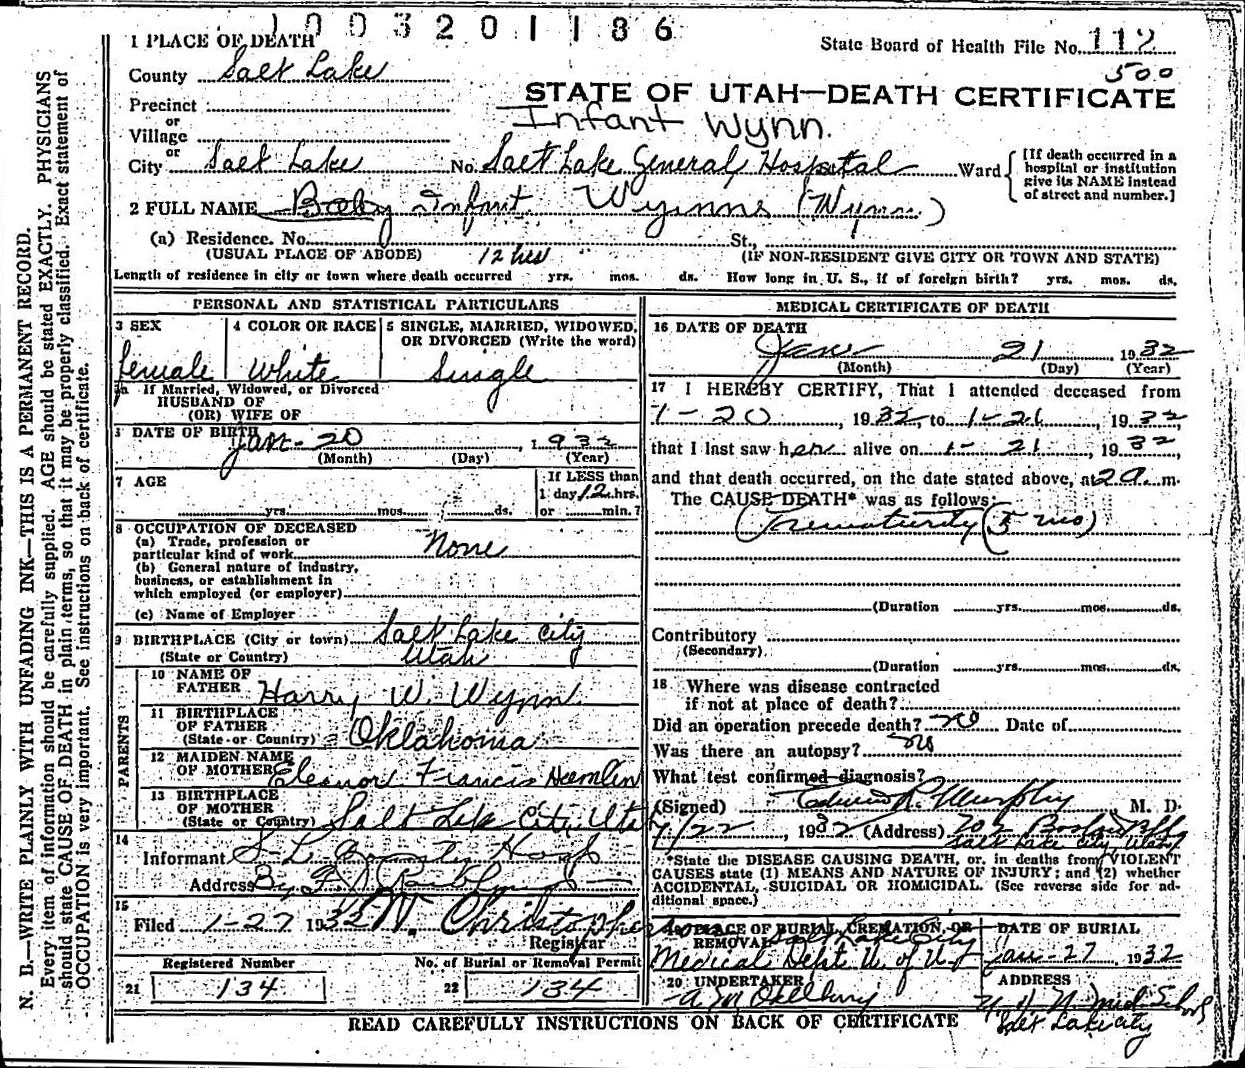 1003201186
1 PLACE OF DEATH
State Board of Health File No. 112
500
County Salt Lake
STATE OF UTAH—DEATH CERTIFICATE
Precinct
or
Infant Wynn.
Village
or
City Salt Lake No. Salt Lake General Hospital Ward
[If death occurred in a hospital or institution give its NAME instead of street and number.]
2 FULL NAME Baby Infant Wynne (Wynn)
(a) Residence. No. St.,
(USUAL PLACE OF ABODE) 12 hrs (IF NON-RESIDENT GIVE CITY OR TOWN AND STATE)
Length of residence in city or town where death occurred yrs. mos. ds. How long in U. S., if of foreign birth? yrs. mos. ds.
PERSONAL AND STATISTICAL PARTICULARS
3 SEX
female
4 COLOR OR RACE
White
5 SINGLE, MARRIED, WIDOWED, OR DIVORCED (Write the word)
Single
If Married, Widowed, or Divorced
HUSBAND OF
(OR) WIFE OF
DATE OF BIRTH Jan-20, 1932
(Month) (Day) (Year)
7 AGE
yrs. mos. ds.
If LESS than
1 day 12 hrs.
or min.?
8 OCCUPATION OF DECEASED
(a) Trade, profession or
particular kind of work None
(b) General nature of industry,
business, or establishment in
which employed (or employer)
(c) Name of Employer
9 BIRTHPLACE (City or town) Salt Lake City
(State or Country) Utah
PARENTS
10 NAME OF
FATHER Harry W. Wynn.
11 BIRTHPLACE
OF FATHER
(State or Country) Oklahoma
12 MAIDEN NAME
OF MOTHER Eleanor Francis Hamlin
13 BIRTHPLACE
OF MOTHER
(State or Country) Salt Lake City, Uta
14
Informant S L County Hosp
Address By
15
Filed 1-27 1932 Christopherson
Registrar
Registered Number
21 134
No. of Burial or Removal Permit
22 134
MEDICAL CERTIFICATE OF DEATH
16 DATE OF DEATH
Jan 21, 1932
(Month) (Day) (Year)
17 I HEREBY CERTIFY, That I attended deceased from
1-20, 1932, to 1-21, 1932,
that I last saw her alive on 1-21, 1932,
and that death occurred, on the date stated above, at 2 a. m.
The CAUSE DEATH* was as follows:
Prematurity (5 mo)
(Duration yrs. mos. ds.
Contributory
(Secondary)
(Duration yrs. mos. ds.
18 Where was disease contracted
if not at place of death?
Did an operation precede death? no Date of
Was there an autopsy? no
What test confirmed diagnosis?
(Signed) Edwin R. Murphy, M. D.
1/22, 1932 (Address) 703 Boston Bldg
Salt Lake City Utah
*State the DISEASE CAUSING DEATH, or, in deaths from VIOLENT
CAUSES state (1) MEANS AND NATURE OF INJURY; and (2) whether
ACCIDENTAL, SUICIDAL OR HOMICIDAL. (See reverse side for additional space.)
19 PLACE OF BURIAL, CREMATION, OR
REMOVAL Salt Lake City
Medical Dept. U. of U.
DATE OF BURIAL
Jan-27 1932
20 UNDERTAKER
A. M.
ADDRESS
Med School
Salt Lake City
READ CAREFULLY INSTRUCTIONS ON BACK OF CERTIFICATE
N. B.—WRITE PLAINLY WITH UNFADING INK—THIS IS A PERMANENT RECORD.
Every item of information should be carefully supplied. AGE should be stated EXACTLY. PHYSICIANS
should state CAUSE OF DEATH in plain terms, so that it may be properly classified. Exact statement of
OCCUPATION is very important. See instructions on back of certificate.